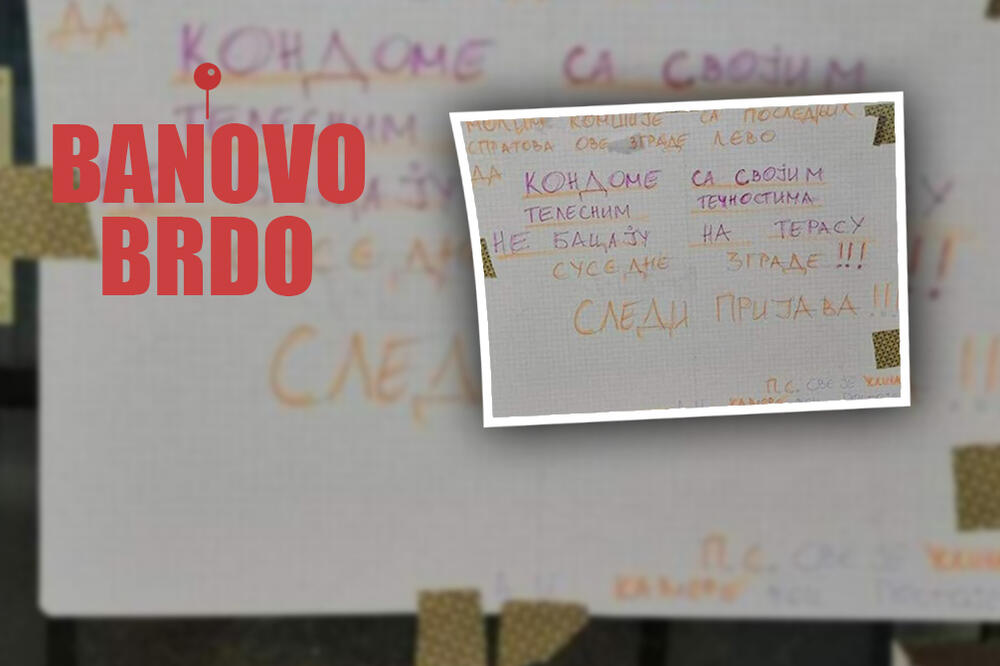 BANOVO
BRDO
МОЛИМ КОМШИЈЕ СА ПОСЛЕДЊИХ
СПРАТОВА ОВЕ ЗГРАДЕ ЛЕВО
ДА КОНДОМЕ СА СВОЈИМ
ТЕЛЕСНИМ ТЕЧНОСТИМА
НЕ БАЦАЈУ НА ТЕРАСУ
СУСЕДНЕ ЗГРАДЕ!!!
СЛЕДИ ПРИЈАВА!!!
П.С. СВЕ ЈЕ